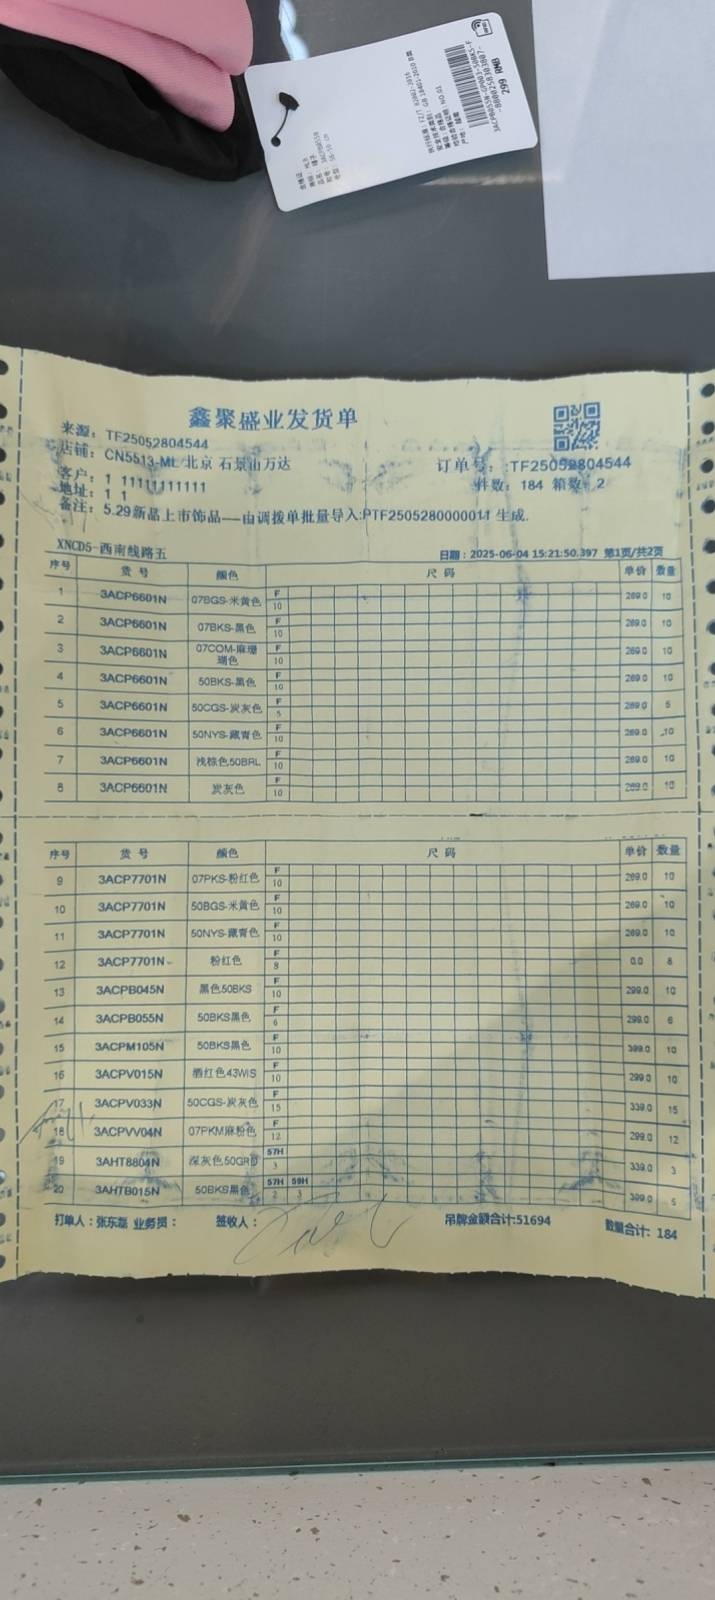 299 RMB
鑫聚盛业发货单
来源：TF25052804544
店铺：CN5513-ML 北京 石景山万达
订单号：TF25052804544
客户：1 11111111111
件数：184 箱数：2
地址：1 1
备注：5.29新品上市饰品——由调拨单批量导入:PTF2505280000011 生成.
XNCD5-西南线路五
日期：2025-06-04 15:21:50.397 第1页/共2页
序号 货 号 颜色 尺 码 单价 数量
1 3ACP6601N 07BGS-米黄色 F 10 269.0 10
2 3ACP6601N 07BKS-黑色 F 10 269.0 10
3 3ACP6601N 07COM-麻珊瑚色 F 10 269.0 10
4 3ACP6601N 50BKS-黑色 F 10 269.0 10
5 3ACP6601N 50CGS-炭灰色 F 5 269.0 5
6 3ACP6601N 50NYS-藏青色 F 10 269.0 10
7 3ACP6601N 浅棕色50BRL F 10 269.0 10
8 3ACP6601N 炭灰色 F 10 269.0 10
序号 货 号 颜色 尺 码 单价 数量
9 3ACP7701N 07PKS-粉红色 F 10 269.0 10
10 3ACP7701N 50BGS-米黄色 F 10 269.0 10
11 3ACP7701N 50NYS-藏青色 F 10 269.0 10
12 3ACP7701N 粉红色 F 8 0.0 8
13 3ACPB045N 黑色50BKS F 10 299.0 10
14 3ACPB055N 50BKS黑色 F 6 299.0 6
15 3ACPM105N 50BKS黑色 F 10 399.0 10
16 3ACPV015N 酒红色43WIS F 10 299.0 10
17 3ACPV033N 50CGS-炭灰色 F 15 339.0 15
18 3ACPVV04N 07PKM麻粉色 F 12 299.0 12
19 3AHT8804N 深灰色50GRD 57H 3 339.0 3
20 3AHTB015N 50BKS黑色 57H 59H 2 3 399.0 5
打单人：张东磊 业务员： 签收人： 吊牌金额合计:51694 数量合计: 184